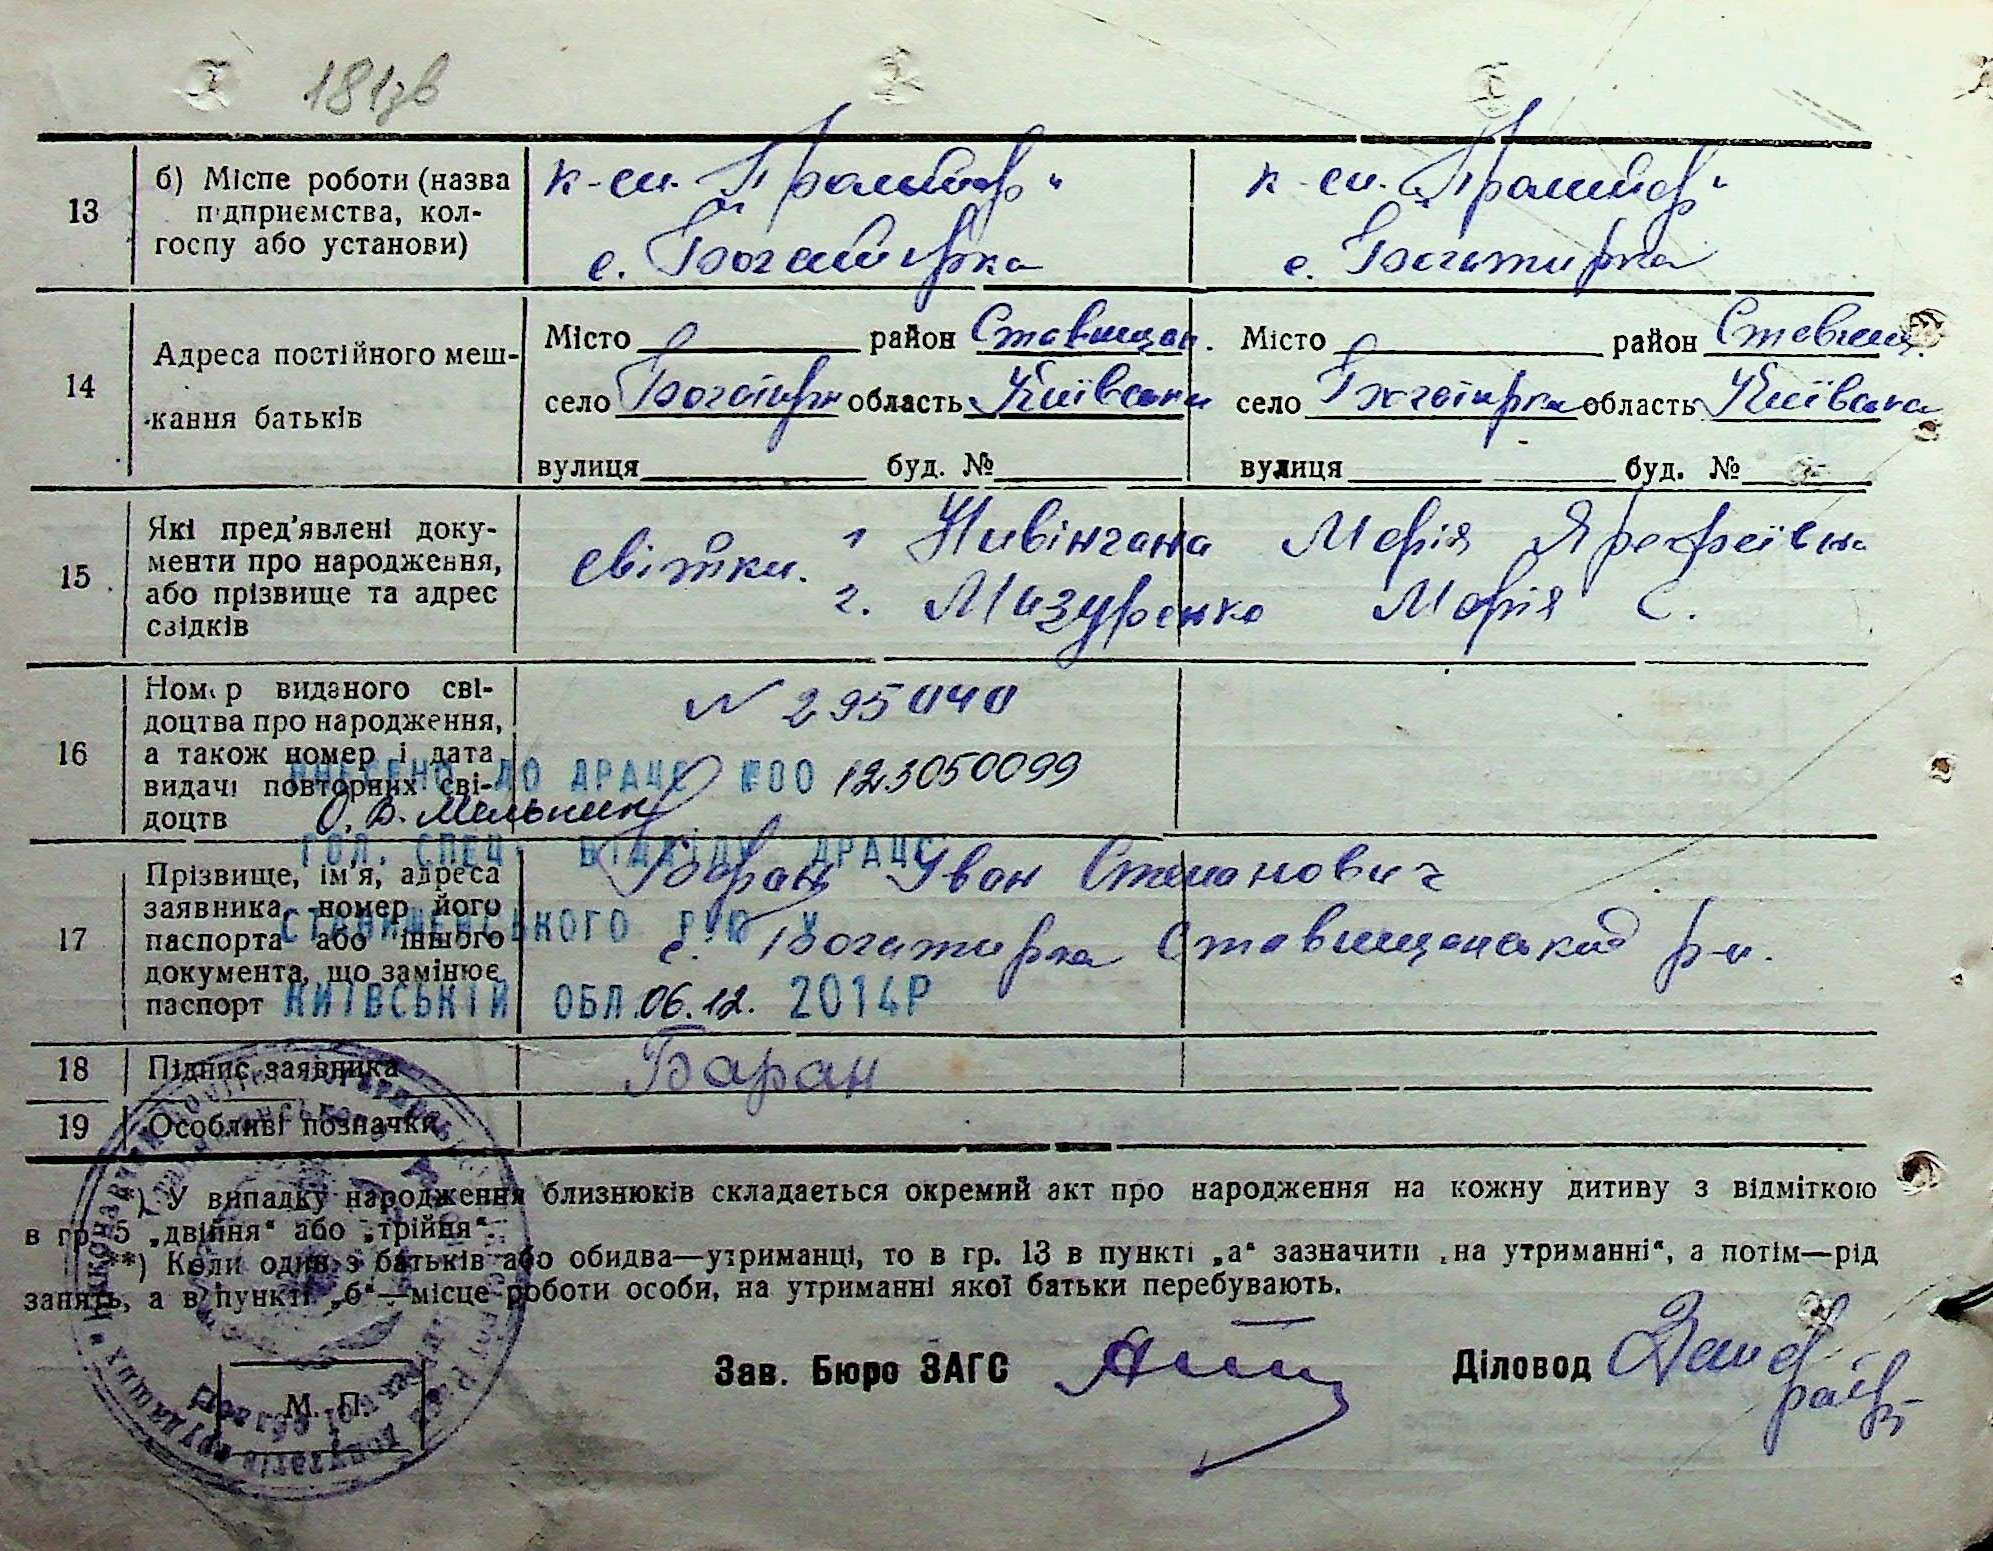 181зв
13 б) Місце роботи (назва підприємства, колгоспу або установи)
к-сп. "Прамтор"
с. Богатирка
к-сп. "Прамтор"
с. Богатирка
14 Адреса постійного меш-
кання батьків
Місто район Ставищан.
село Богатирка область Київська
вулиця буд. №
Місто район Ставищ.
село Богатирка область Київська
вулиця буд. №
15 Які пред'явлені доку-
менти про народження,
або прізвище та адрес
свідків
світки. 1 Марія
2. Мазуренко Марія С.
16 Номер виданого сві-
доцтва про народження,
а також номер і дата
видачі повторних сві-
доцтв
N 295040
ВНЕСЕНО ДО ДРАЦС №00 123050099
О. В. Мельник
ГОЛ. СПЕЦ. ВІДДІЛУ ДРАЦС
СТАВИЩЕНСЬКОГО РУЮ У
КИЇВСЬКІЙ ОБЛ. 06.12. 2014Р
17 Прізвище, ім'я, адреса
заявника, номер його
паспорта або іншого
документа, що замінює
паспорт
Баран Іван Степанович
с. Богатирка Ставищанський р-н.
18 Підпис заявника Баран
19 Особливі позначки
*) У випадку народження близнюків складається окремий акт про народження на кожну дитину з відміткою
в гр. 5 „двійня“ або „трійня“.
**) Коли один з батьків або обидва—утриманці, то в гр. 13 в пункті „а“ зазначити „на утриманні“, а потім—рід
занять, а в пункті „б“—місце роботи особи, на утриманні якої батьки перебувають.
Зав. Бюро ЗАГС Діловод
М. П.